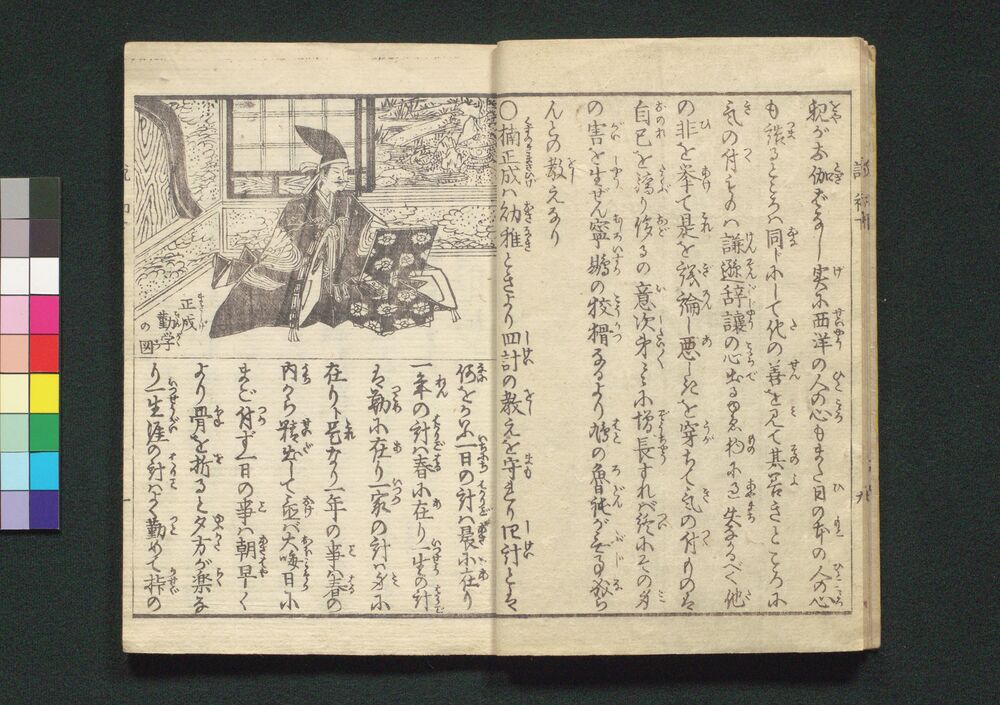 親がお伽ばなし実に西洋の人の心もまた日の本の人の心
も譲るところは同じにして他の善を見て其善きところに
気の付ものは謙遜辞譲の心出るゆゑ物に過失なかるべく他
の非を挙て是を議論し悪しきを穿ちて気の付ものは
自己を誇り侮るの意次第々々に増長すればつひにその身
の害を生ぜん寧鵡の狡猾なるより鳩の魯鈍が無事なら
んとの教えなり
〇楠正成ハ幼稚ときより四計の教えを守れり四計とは
何をか云一日の計ハ晨に在り
一年の計ハ春に在り一生の計
は勤に在り一家の計ハ身に
在りト是なり一年の事ハ春の
内から精出して置バ大晦日に
まごつかず一日の事ハ朝早く
より骨を折ると夕方が楽な
り一生涯の計はよく勤めて稼の
正成
勤学
の図